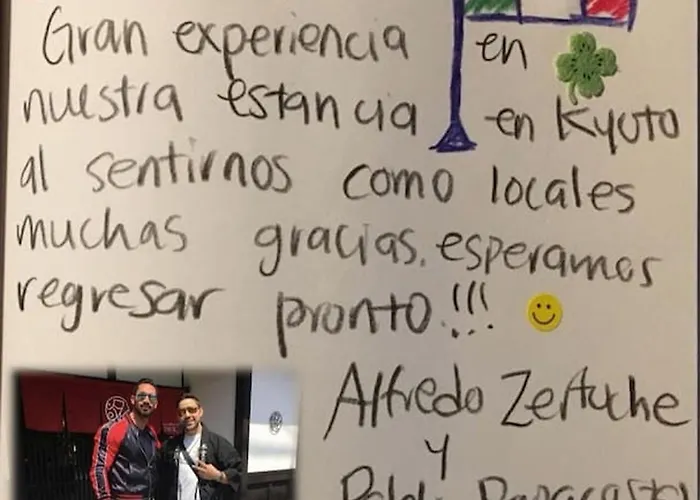 Gran experiencia en
nuestra estancia en Kyoto
al sentirnos como locales
muchas gracias. esperamos
regresar pronto!!!
Alfredo Zertuche
y